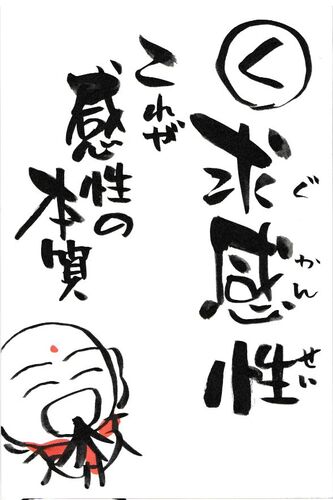 く
求感性
ぐかんせい
これが
感性の
本質
本